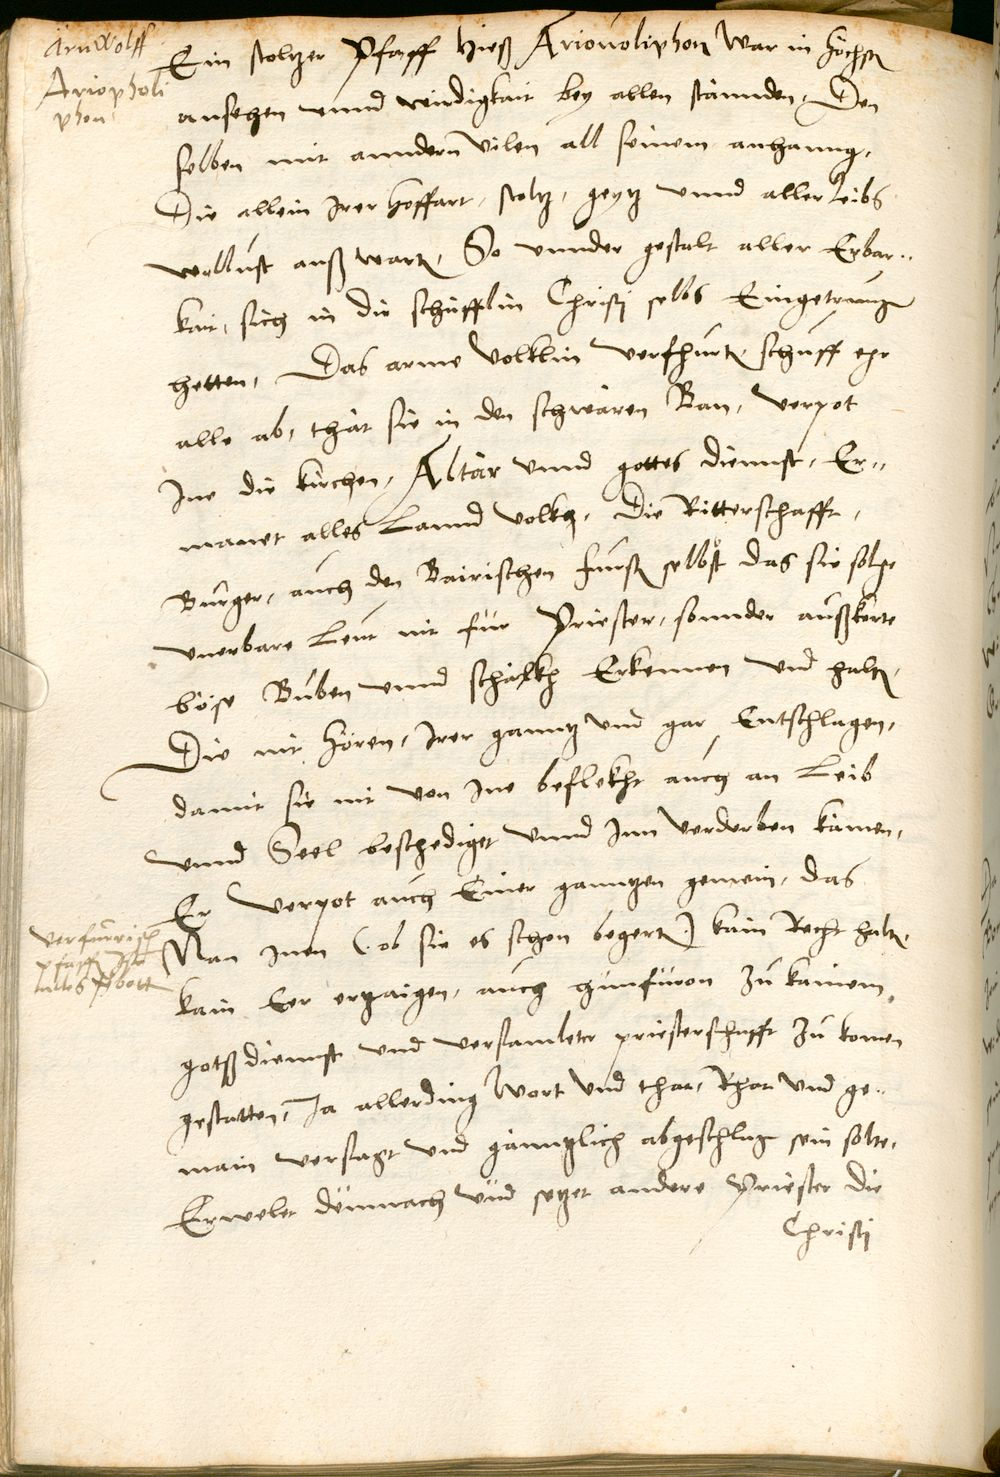 Arnwolff
Ariopholi
phon
Ein stoltzer Pfaff hieß Ariouoliphon war in höchsten
ansehen vnnd wirdigkait bey allen stännden, Den
selben mit anndern vilen all seinem anhanng,
Die allein Irer hoffart, stoltz, geytz vnnd aller Leibs
wollust auß warten, So vnnder gestalt aller Erbar..
kait, sich in die schäfflin Christi selbs Eingetrungen
hetten, Das arme Volklin verfhürten, schuff ehr
alle ab, thät sie in den schwären Ban, verpot
Ine die kirchen, Altär vnnd gottes diennst, Er..
manet alles Lannd volkh, Die Ritterschafft,
Burger, auch den Bairischen fürsten selbst das sie solche
vnerbare Leut nit für Priester, sonnder außkerte
böse Buben vnnd schälkh Erkennen vnd halten,
Die nit hören, Irer ganntz vnd gar Entschlagen,
damit sie nit von Ine beflekht auch an Leib
vnnd Seel beschediget vnnd Inn verderben kämen,
Er verpot auch Einer ganntzen gemein, das
Man Inen (ob sie es schon begerten) kain Recht halten,
verfürrisch
pfaff
kain Eer ertzaigen, auch hinfüron zů kainem
gotßdiennst vnd versamleter priesterschafft zů komen
gestatten, Ja allerding wort vnd that, Rhat vnd ge..
main versagt vnd gänntzlich abgeschlagen sein solte,
Erwelet demnach vnd setzet andere Priester die
Christi